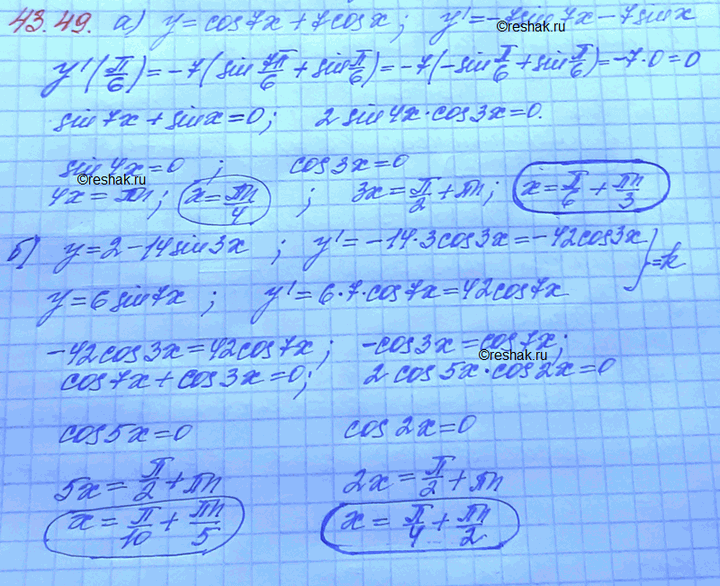 43.49. а) y=cos7x+7cosx; y'=-7sin7x-7sinx
y'(π/6)=-7(sin 7π/6+sin π/6)=-7(-sin π/6+sin π/6)=-7·0=0
sin7x+sinx=0; 2sin4x·cos3x=0.
sin4x=0; cos3x=0
©reshak.ru
4x=πn; x=πn/4; 3x=π/2+πn; x=π/6+πn/3
©reshak.ru
б) y=2-14sin3x; y'=-14·3cos3x=-42cos3x
y=6sin7x; y'=6·7·cos7x=42cos7x } =k
-42cos3x=42cos7x; -cos3x=cos7x;
©reshak.ru
cos7x+cos3x=0; 2cos5x·cos2x=0
cos5x=0 cos2x=0
5x=π/2+πn 2x=π/2+πn
x=π/10+πn/5 x=π/4+πn/2